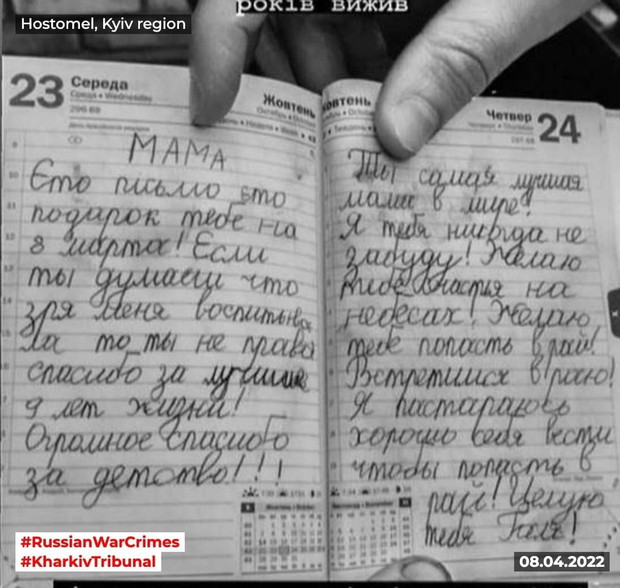 років вижив
Hostomel, Kyiv region
23 Середа
Среда • Wednesday
Жовтень
МАМА
Єто письмо єто
подарок тебе на
8 марта! Если
ты думаеш что
зря меня воспитыва
ла то ты не права
спасибо за лучшие
9 лет жизни!
Огромное спасибо
за детство!!!
овтень
Четвер 24
Ты самая лучшая
мама в мире!
Я тебя никогда не
забуду! Желаю
тебе счастья на
небесах! Желаю
тебе попасть в рай!
Встретимся в раю!
Я пастараюсь
хорошо себя вести
чтобы попасть в
рай! Целую
тебя Галя!
#RussianWarCrimes
#KharkivTribunal
08.04.2022